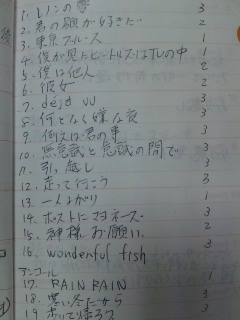 1. レノンの夢 3
2. 君の顔が好きだ 2
3. 東京ブルース 1
4. 僕が見たビートルズはTVの中 1
5. 僕は他人 2
6. 彼女 2
7. déjà vu 3
8. 何となく嫌な夜 3
9. 例えば君の事 3
10. 無意識と意識の間で 3
11. 引っ越し 3
12. 走って行こう 3
13. 一人よがり 1
14. ポストにマヨネーズ 3
15. 神様お願い 2
16. wonderful fish 3
アンコール
17. RAIN RAIN 1
18. 寒い冬だから 3
19. 歩いて帰ろう 3